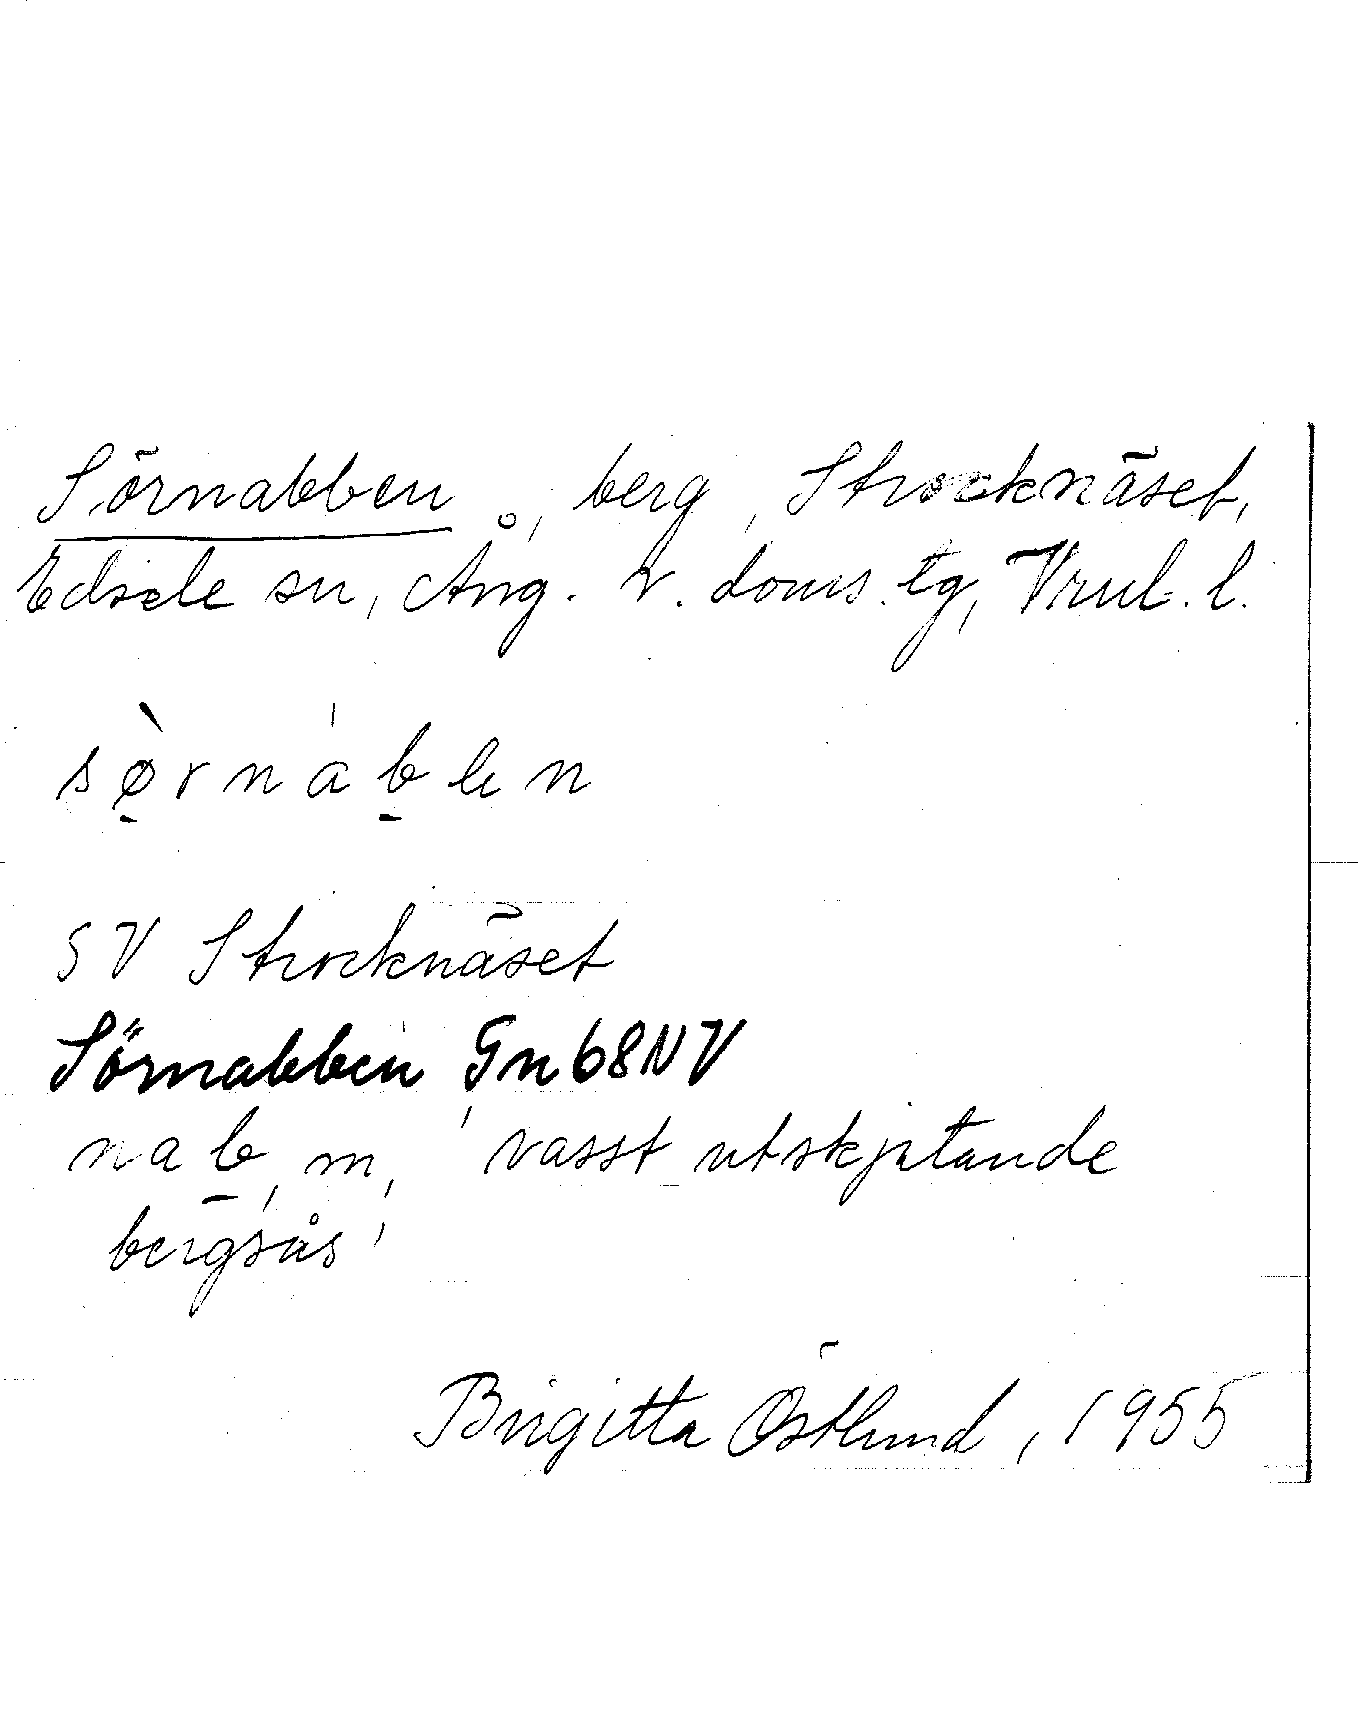 Sörnabben, berg, Strocknäset,
Edsele sn, Ång. v. doms.tg, Vnl. l.
sø̱̀rnàḇen
SV Strocknäset
Sörnabben Gn68NV
naḇ, m, 'vasst utskjutande
bergsås'
Birgitta Östlund, 1955